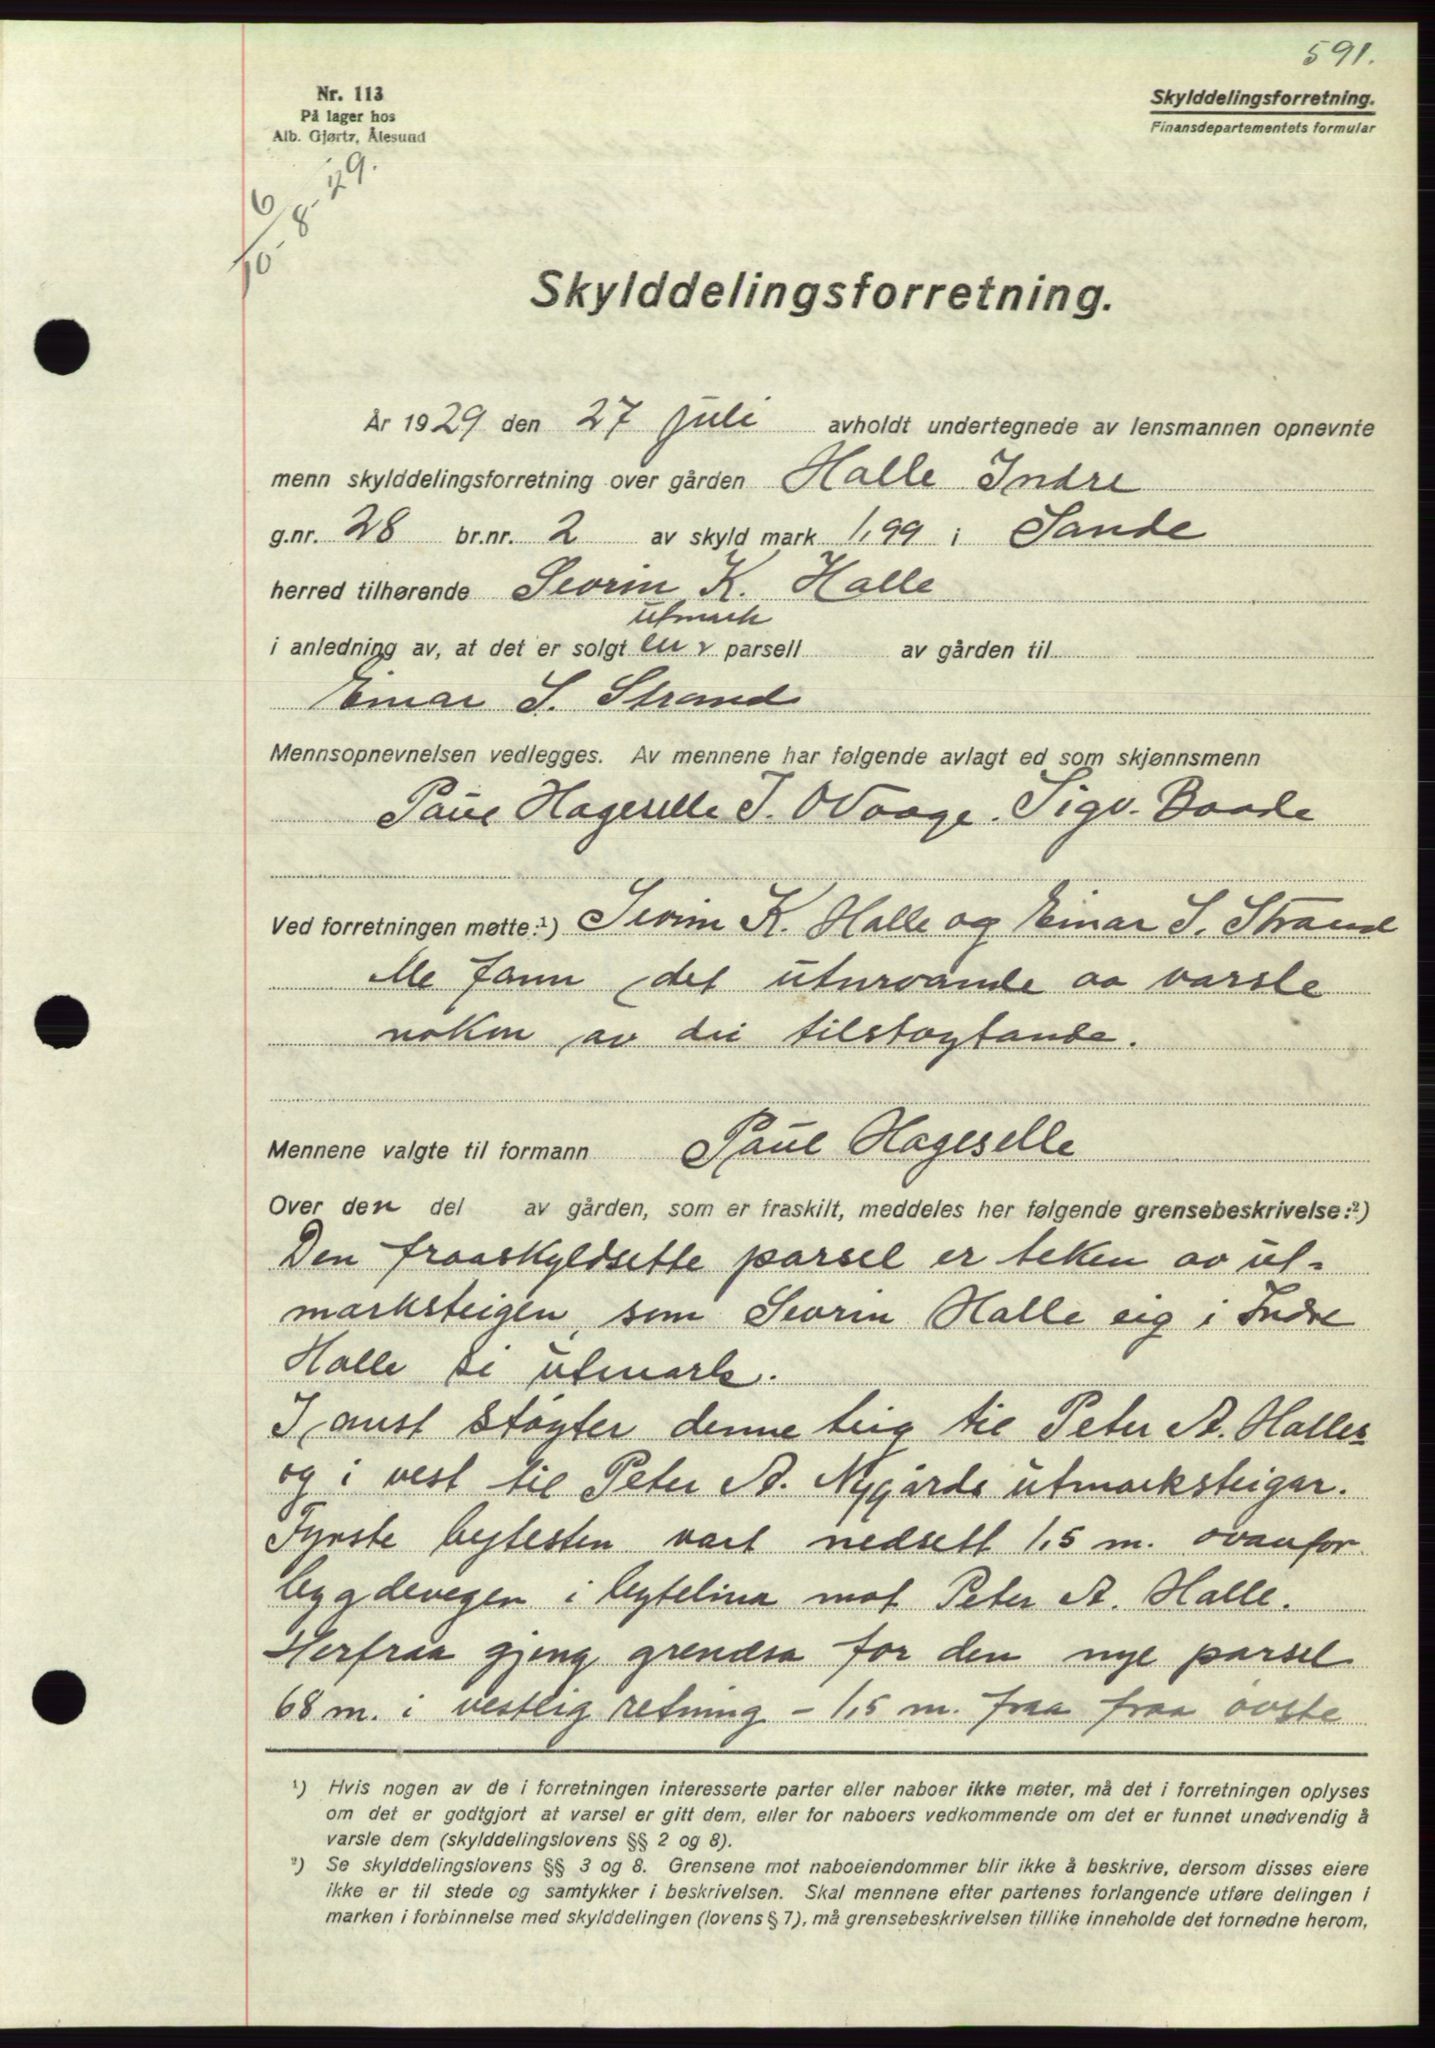 591.
Nr. 113
På lager hos
Alb. Gjørtz, Ålesund
Skylddelingsforretning.
Finansdepartementets formular
6/10-8-29.
Skylddelingsforretning.
År 1929 den 27 juli avholdt undertegnede av lensmannen opnevnte
menn skylddelingsforretning over gården Halle Indre
g.nr. 28 br.nr. 2 av skyld mark 1,99 i Sande
herred tilhørende Sevrin K. Halle
utmark
i anledning av, at det er solgt en parsell av gården til
Einar S. Strand
Mennsopnevnelsen vedlegges. Av mennene har følgende avlagt ed som skjønnsmenn
Paul Hageselle J. Waage. Sigv. Baade
Ved forretningen møtte:¹) Sevrin K. Halle og Einar S. Strand
Me fann det uturvande aa varsle
noken av dei tilstøytande.
Mennene valgte til formann Paul Hageselle
Over den del av gården, som er fraskilt, meddeles her følgende grensebeskrivelse:²)
Den fraaskyldsette parsel er teken av ut-
marksteigen, som Sevrin Halle eig i Indre
Halle si utmark.
I aust støyter denne teig til Peter A. Halles
og i vest til Peter A. Nygårds utmarksteigar.
Fyrste bytesten vart nedsett 1,5 m. ovanfor
bygdevegen i bytelina mot Peter A. Halle.
Herfraa gjeng grendsa for den nye parsel
68 m. i vestlig retning - 1,5 m. fraa fraa øvste
¹) Hvis nogen av de i forretningen interesserte parter eller naboer ikke møter, må det i forretningen oplyses
om det er godtgjort at varsel er gitt dem, eller for naboers vedkommende om det er funnet unødvendig å
varsle dem (skylddelingslovens §§ 2 og 8).
²) Se skylddelingslovens §§ 3 og 8. Grensene mot naboeiendommer blir ikke å beskrive, dersom disses eiere
ikke er til stede og samtykker i beskrivelsen. Skal mennene efter partenes forlangende utføre delingen i
marken i forbinnelse med skylddelingen (lovens § 7), må grensebeskrivelsen tillike inneholde det fornødne herom,